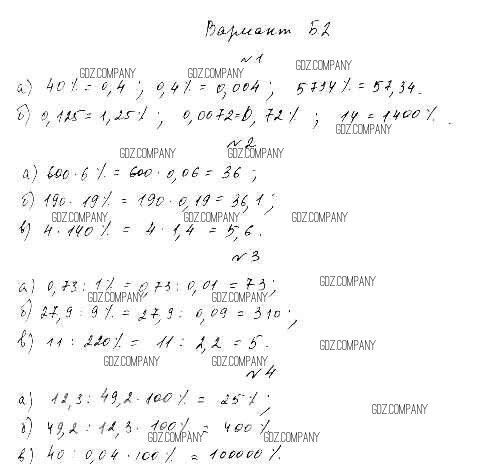 Вариант Б2
№1
GDZ.COMPANY GDZ.COMPANY GDZ.COMPANY
а) 40% = 0,4; 0,4% = 0,004; 5734% = 57,34.
б) 0,125 = 1,25%; 0,0072 = 0,72%; 14 = 1400%.
GDZ.COMPANY
№2
GDZ.COMPANY GDZ.COMPANY
а) 600·6% = 600·0,06 = 36;
б) 190·19% = 190·0,19 = 36,1;
GDZ.COMPANY GDZ.COMPANY GDZ.COMPANY
в) 4·140% = 4·1,4 = 5,6.
№3
а) 0,73:1% = 0,73:0,01 = 73;
GDZ.COMPANY
GDZ.COMPANY GDZ.COMPANY
б) 27,9:9% = 27,9:0,09 = 310;
в) 11:220% = 11:2,2 = 5.
GDZ.COMPANY
GDZ.COMPANY GDZ.COMPANY
№4
а) 12,3:49,2·100% = 25%;
GDZ.COMPANY
б) 49,2:12,3·100% = 400%
GDZ.COMPANY GDZ.COMPANY
в) 40:0,04·100% = 100000%.